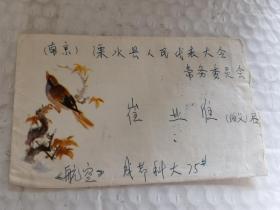 (南京) 溧水县人民代表大会
常务委员会
崔 业 准
《航空》 成都科大75#